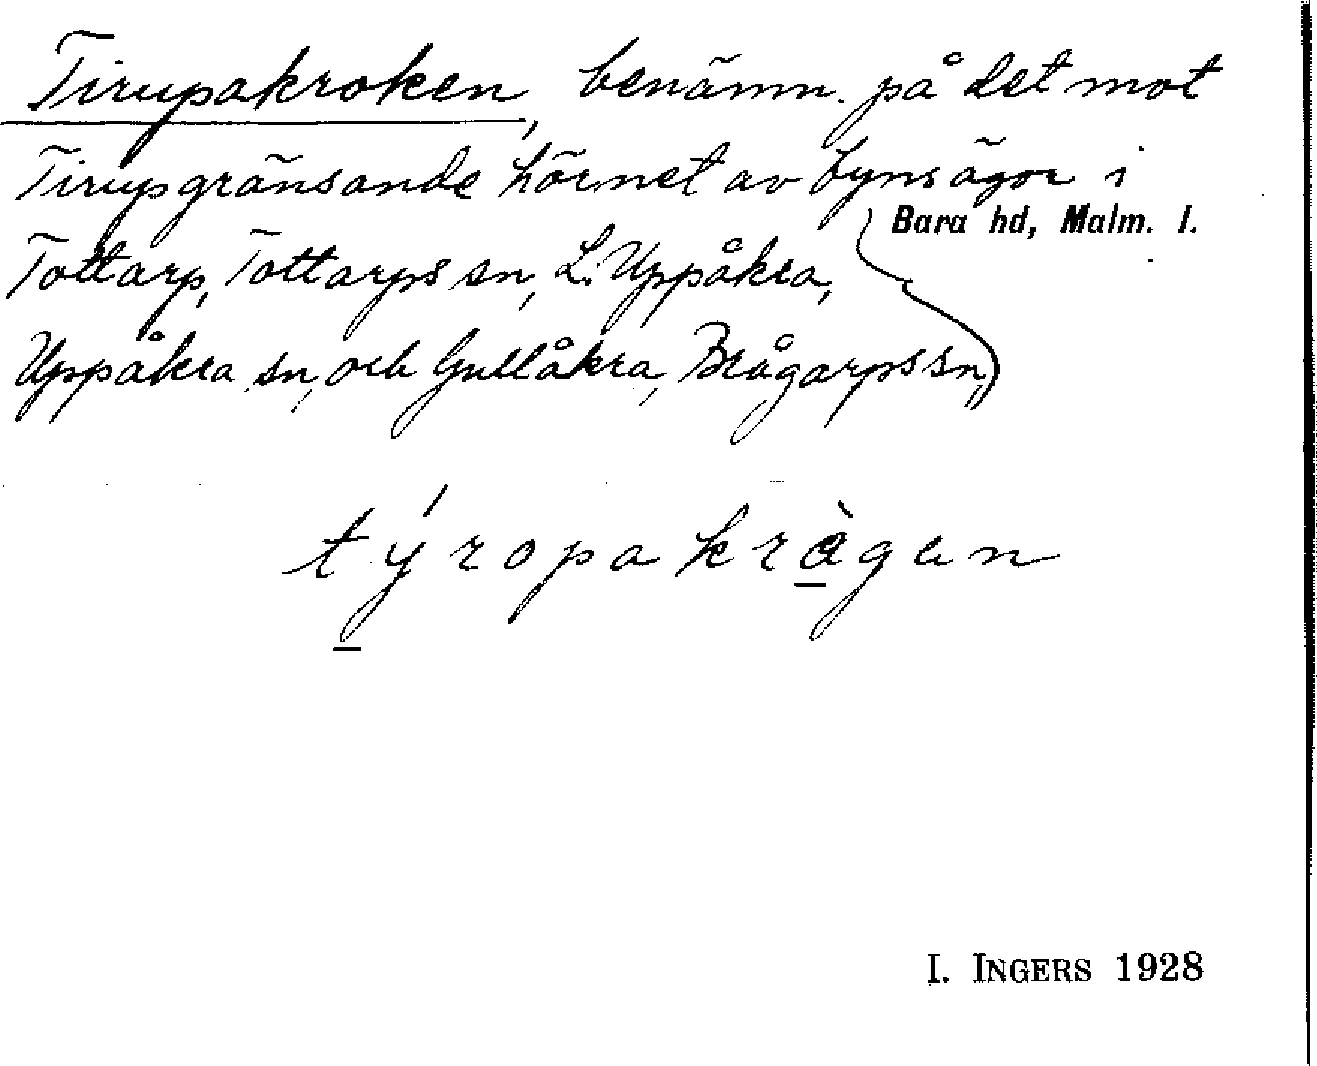 Tirupakroken, benämn. på det mot
Tirup gränsande hörnet av byns ägor i
Bara hd, Malm. l.
Tottarp, Tottarps sn, L. Uppåkra,
Uppåkra sn, och Gullåkra, Brågarps sn,
týropakrògen
I. INGERS 1928